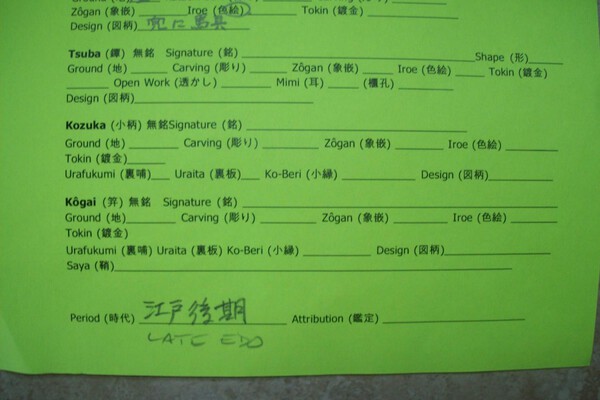 Zôgan (象嵌) Iroe (色絵) Tokin (鍍金)
Design (図柄) 兜に馬具
Tsuba (鐔) 無銘 Signature (銘) Shape (形)
Ground (地) Carving (彫り) Zôgan (象嵌) Iroe (色絵) Tokin (鍍金)
Open Work (透かし) Mimi (耳) (櫃孔)
Design (図柄)
Kozuka (小柄) 無銘Signature (銘)
Ground (地) Carving (彫り) Zôgan (象嵌) Iroe (色絵)
Tokin (鍍金)
Urafukumi (裏哺) Uraita (裏板) Ko-Beri (小縁) Design (図柄)
Kôgai (笄) 無銘 Signature (銘)
Ground (地) Carving (彫り) Zôgan (象嵌) Iroe (色絵)
Tokin (鍍金)
Urafukumi (裏哺) Uraita (裏板) Ko-Beri (小縁) Design (図柄)
Saya (鞘)
Period (時代) 江戸後期 Attribution (鑑定)
LATE EDO